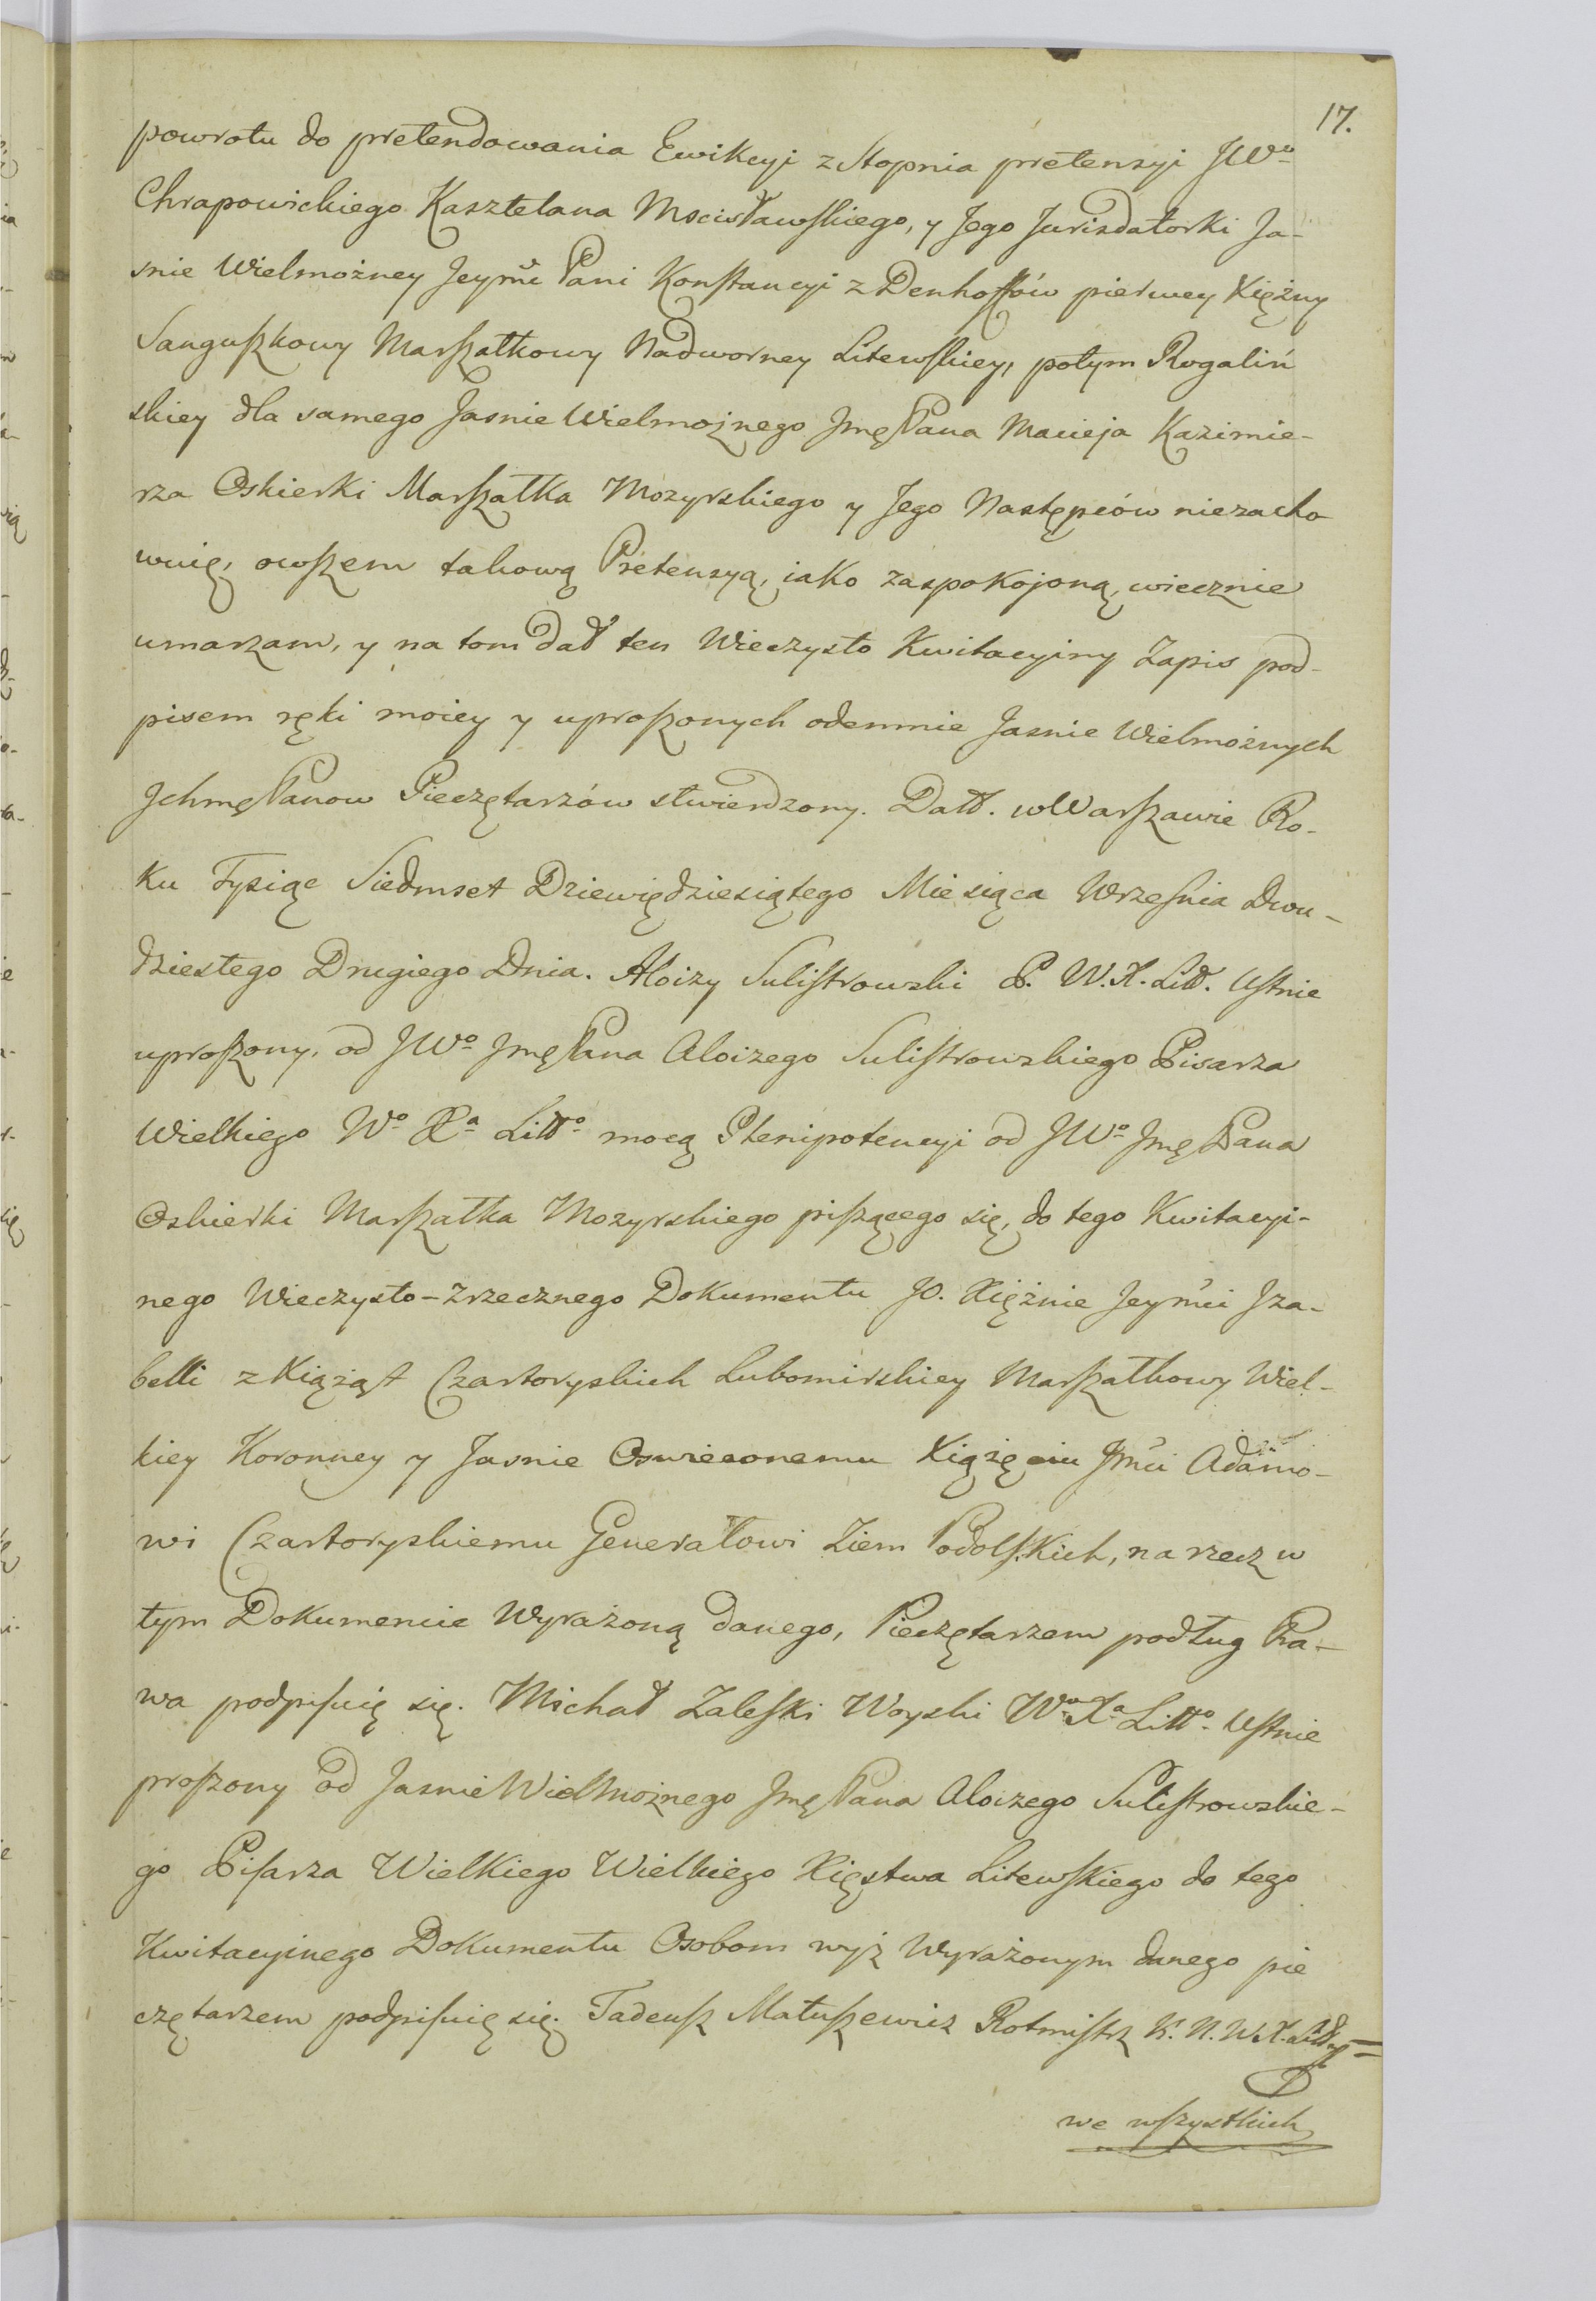 17.
powrotu do pretendowania Ewikcyi z Stopnia pretensyi JWo
Chrapowickiego Kasztelana Mscisławskiego, y Jego Jurisdatorki Ja-
snie Wielmożney Jeymci Pani Konstancyi z Denhoffów pierwey Xiężny
Sanguszkowy Marszałkowy Nadworney Litewskiey, potym Rogaliń
skiey dla samego Jasnie Wielmożnego Jmę Pana Macieja Kazimie-
rza Oskierki Marszałka Mozyrskiego y Jego Następców niezacho
wuię, owszem takową Pretensyą, iako zaspokojoną, wiecznie
umarzam, y na tom dał ten Wieczysto Kwitacyiny Zapis pod-
pisem ręki moiey y uproszonych odemnie Jasnie Wielmożnych
Jchmę Panow Pieczętarzów stwierdzony. Datt. w Warszawie Ro-
ku Tysiąc Siedmset Dziewiędziesiątego Miesiąca Wrzesnia Dwu-
dziestego Drugiego Dnia. Aloizy Sulistrowski P. W. X. Litt. Ustnie
uproszony, od JWo Jmę Pana Aloizego Sulistrowskiego Pisarza
Wielkiego Wo Xa Litto mocą Plenipotencyi od JWo Jmę Pana
Oskierki Marszałka Mozyrskiego piszącego się, do tego Kwitacyi-
nego Wieczysto-Zrzecznego Dokumentu JO. Xiężnie Jeymci Iza-
belli z Xiążąt Czartoryskich Lubomirskiey Marszałkowy Wiel-
kiey Koronney y Jasnie Oswieconemu Xiążęciu Jmci Adamo-
wi Czartoryskiemu Generałowi Ziem Podolskich, na rzecz w
tym Dokumencie Wyrażoną danego, Pieczętarzem podług Pra-
wa podpisuię się. Michał Zaleski Woyski Wo Xa Litto Ustnie
proszony od Jasnie Wielmożnego Jmę Pana Aloizego Sulistrowskie-
go Pisarza Wielkiego Wielkiego Xięstwa Litewskiego do tego
Kwitacyinego Dokumentu Osobom wyż Wyrażonym danego pie
czętarzem podpisuię się. Tadeusz Matuszewicz Rotmistrz K. N. W. X. Litt.
we wszystkich